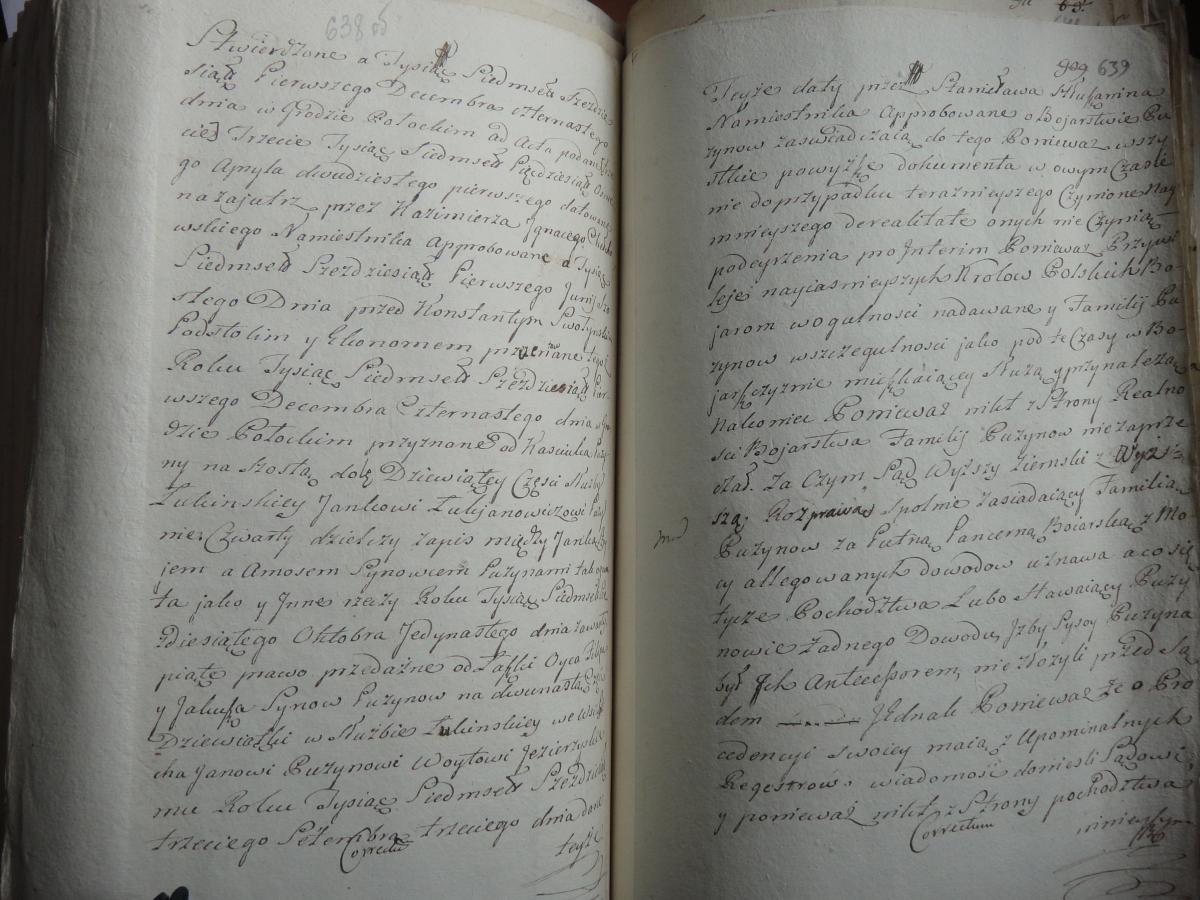 638 об
Stwierdzone a Tysiąc Siedmset Szezdzie
siąt Pierwszego Decembra czternastego
dnia w Grodzie Połockim ad Acta podane
cie Trzecie Tysiąc Siedmset Pięcdziesiąt Osme
go Apryla dwudziestego pierwszego datowane
nazajutrz przez Kazimierza Ignacego
wskiego Namiestnika Approbowane a Tysiąc
Siedmset Szezdziesiąt Pierwszego Junij
stego Dnia przed Konstantym
Podstolim y Ekonomem przyznane tegoż
Roku Tysiąc Siedmset Szezdziesiąt Pier
wszego Decembra Czternastego dnia w Gro
dzie Połockim przyznane od Kasciuka
ny na szostą dolę Dziewiątey Częsci Służby
Łukinskiey Jankowi Łukjanowiczowi
nie Czwarty dzielczy zapis między Jankiem
jem a Amosem Synowcem Puzynami tak
ta jako y Jnne rzeczy Roku Tysiąc Siedmset
dziesiątego Oktobra Jedynastego dnia zawarty
piąte prawo przedażne od Łaski Oyca Filipa
y Jakuba Synow Puzynow na dwunastą Częsc
Dziewiątki w Służbie Łukinskiey we Wsi
cha Janowi Puzynowi Woytowi Jezierzyskie
mu Roku Tysiąc Siedmset Szezdziesiąt
trzeciego Septembra trzeciego dnia dane
Correctum
teyże
639
Teyże daty przez Stanisława
Namiestnika Approbowane o Bojarstwie Pu
zynow zaswiadczaią do tego Ponieważ wszy
stkie powyzsze dokumenta w owym Czasie
nie do przypadku teraznieyszego Czynione nay
mnieyszego de realitate onych nie Czynią
podeyrzenia pro Interim Ponieważ Przywi
leje nayiasnieyszych Krolow Polskich Bo
jarom w ogulnosci nadawane y Familij Pu
zynow w szczegulnosci jako pod te Czasy w Bo
jarszczyznie mieszkaiącey służą y przynależą
Nakoniec Ponieważ nikt z Strony Realno
sci Bojarstwa Familij Puzynow nie zaprze
czał. Za Czym Sąd Wyższy Ziemski z Wyż
szą Rozprawą spolnie zasiadaiący Familią
Puzynow za Putną Pancerną Boiarską z Mo
cy allegowanych dowodow uznawa a co się
tycze Pochodztwa Lubo stawaiący Puzy
nowie żadnego Dowodu, Jżby Sysoy Puzyna
był Jch Antecessorem, nie złożyli przed Są
dem Jednak Ponieważ że o Pro
cedencyi swoiey maią z Upominalnych
Regestrow, wiadomość doniesli Sądowi,
y ponieważ nikt z Strony pochodztwa
Correctum
ninieyszym